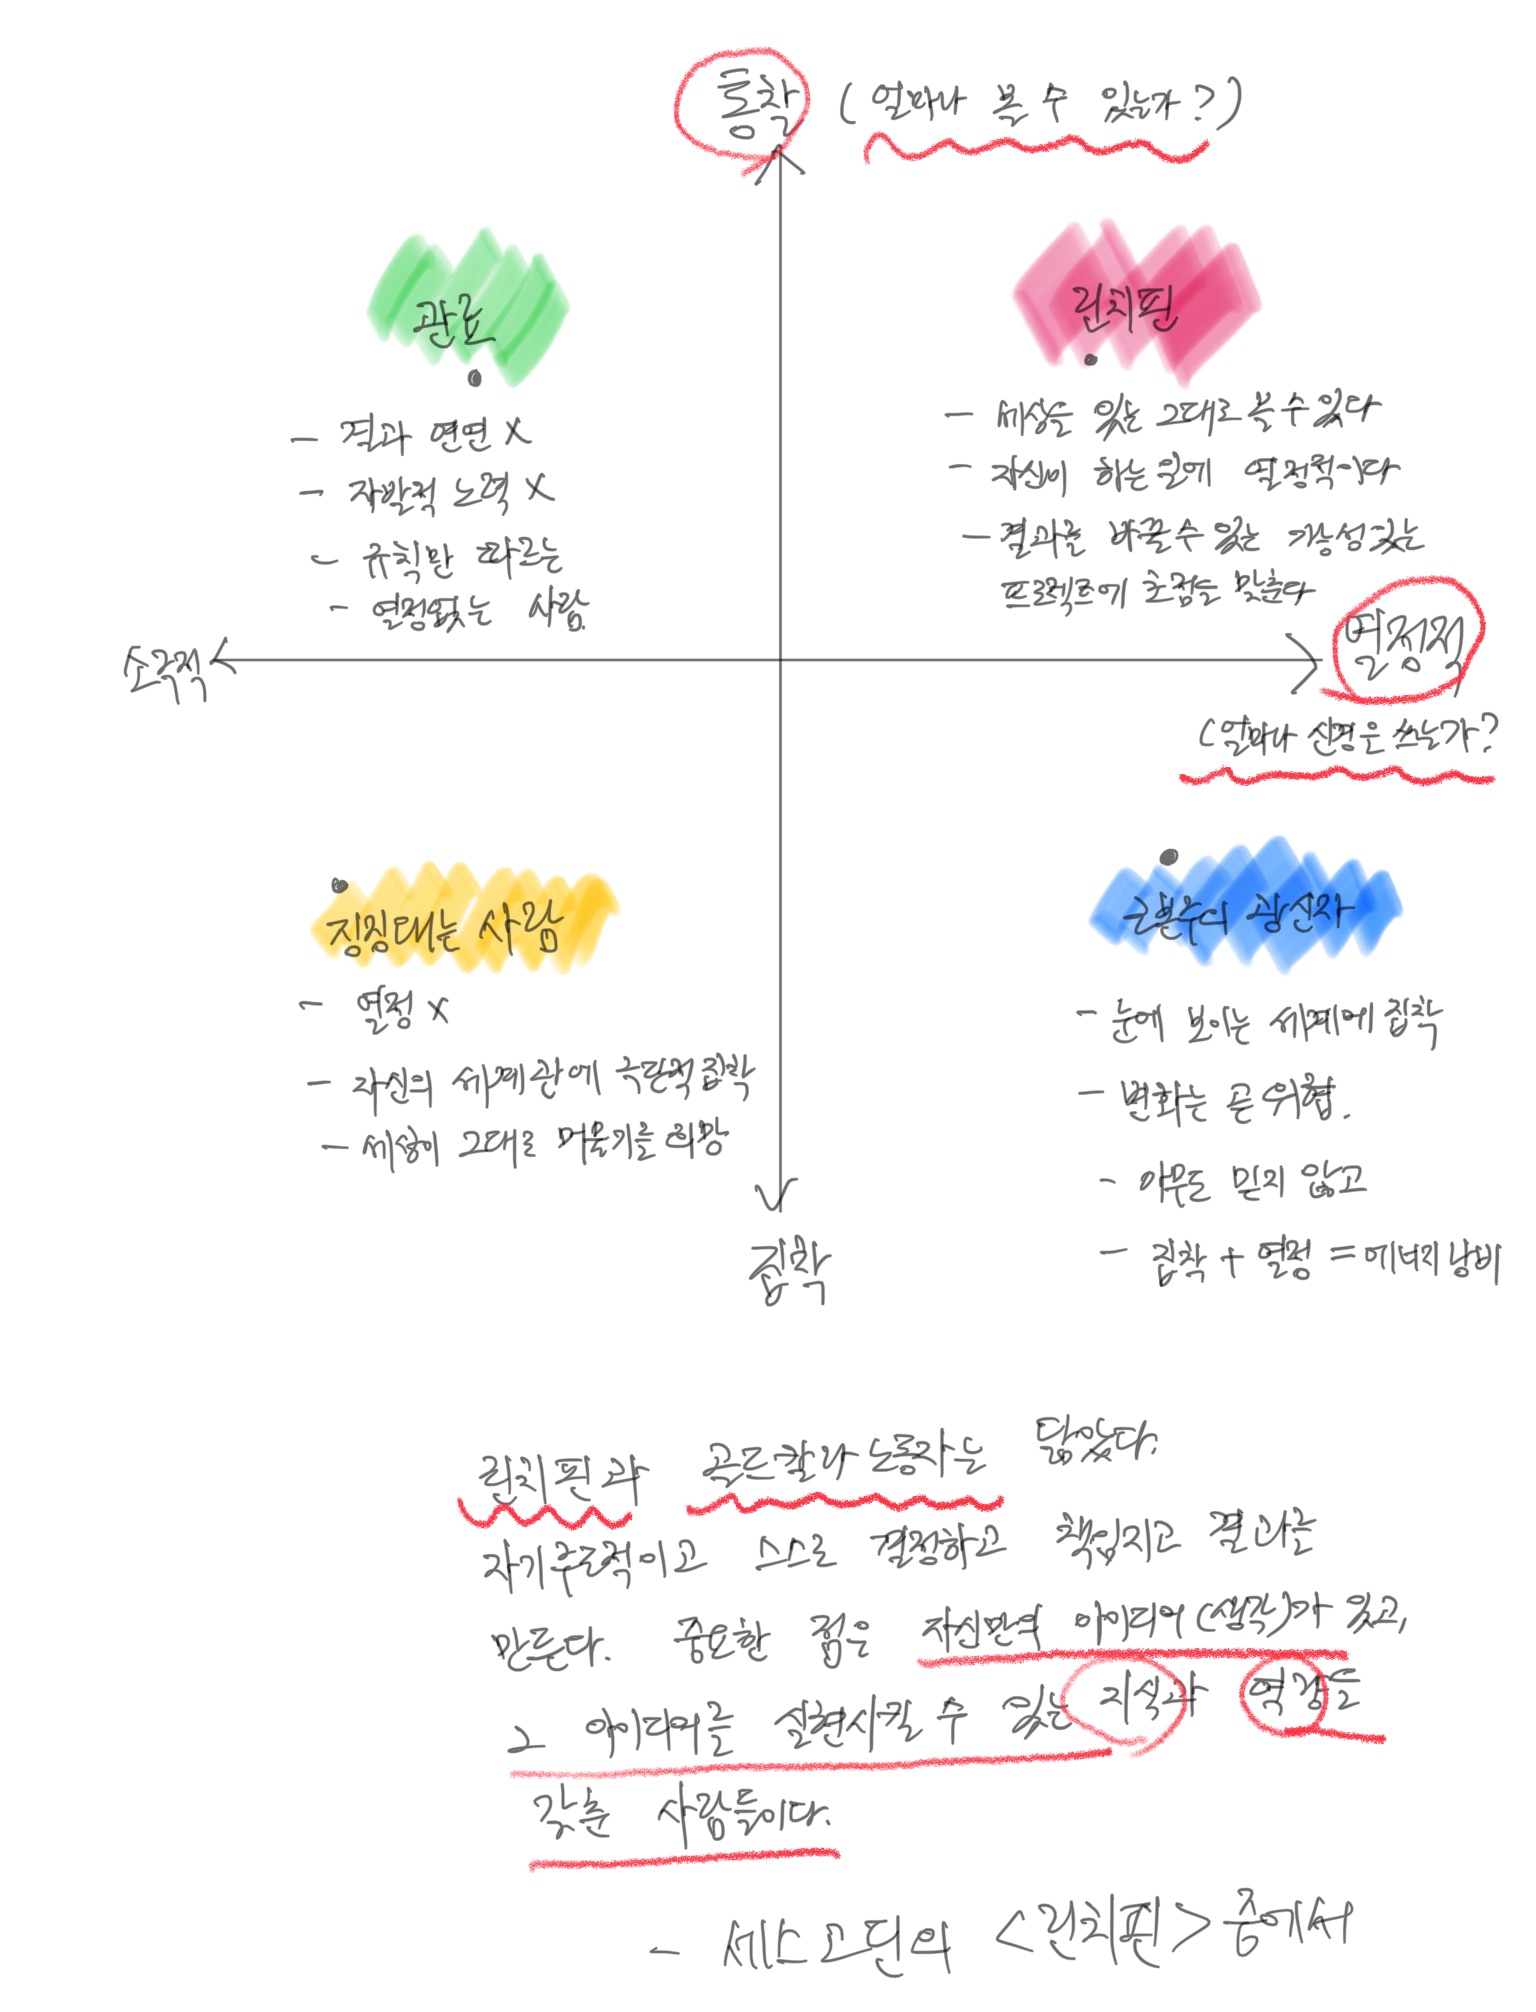 통찰 (얼마나 볼 수 있는가?)
관료
- 결과 연연 X
- 자발적 노력 X
- 규칙만 따르는
- 열정없는 사람.
린치핀
- 세상을 있는 그대로 볼 수 있다
- 자신이 하는 일에 열정적이다
- 결과를 바꿀 수 있는 가능성있는
프로젝트에 초점을 맞춘다
소극적
열정적
(얼마나 신경은 쓰는가?
징징대는 사람
- 열정 X
- 자신의 세계관에 극단적 집착
- 세상이 그대로 머물기를 희망
근본주의 광신자
- 눈에 보이는 세계에 집착
- 변화는 곧 위협.
- 아무도 믿지 않고
- 집착 + 열정 = 에너지 낭비
집착
린치핀과 골드칼라 노동자는 닮았다.
자기주도적이고 스스로 결정하고 책임지고 결과를
만든다. 중요한 점은 자신만의 아이디어(생각)가 있고,
그 아이디어를 실현시킬 수 있는 지식과 역량을
갖춘 사람들이다.
- 세스고딘의 <린치핀> 중에서